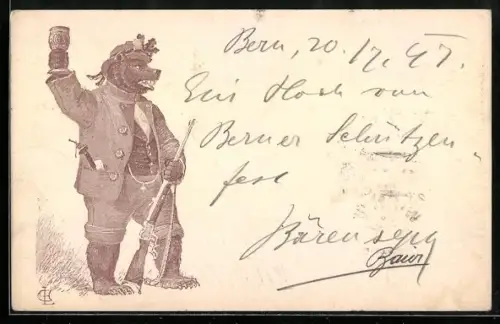 Bern, 20./7. 97.
Ein Hoch vom
Berner Schützen-
fest
Bären
Baur